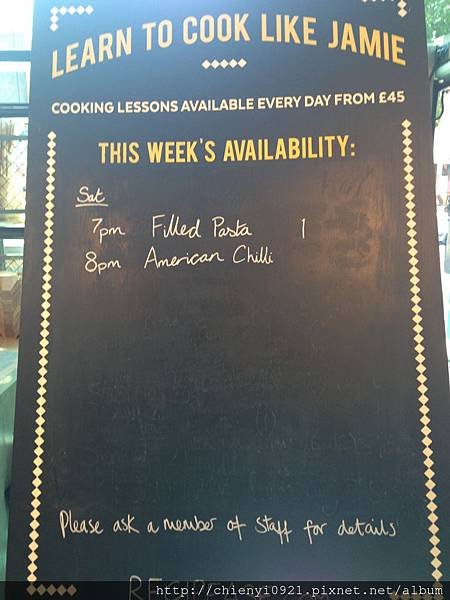 LEARN TO COOK LIKE JAMIE
COOKING LESSONS AVAILABLE EVERY DAY FROM £45
THIS WEEK'S AVAILABILITY:
Sat
7pm Filled Pasta 1
8pm American Chilli
Please ask a member of staff for details
http://chienyi0921.pixnet.net/album